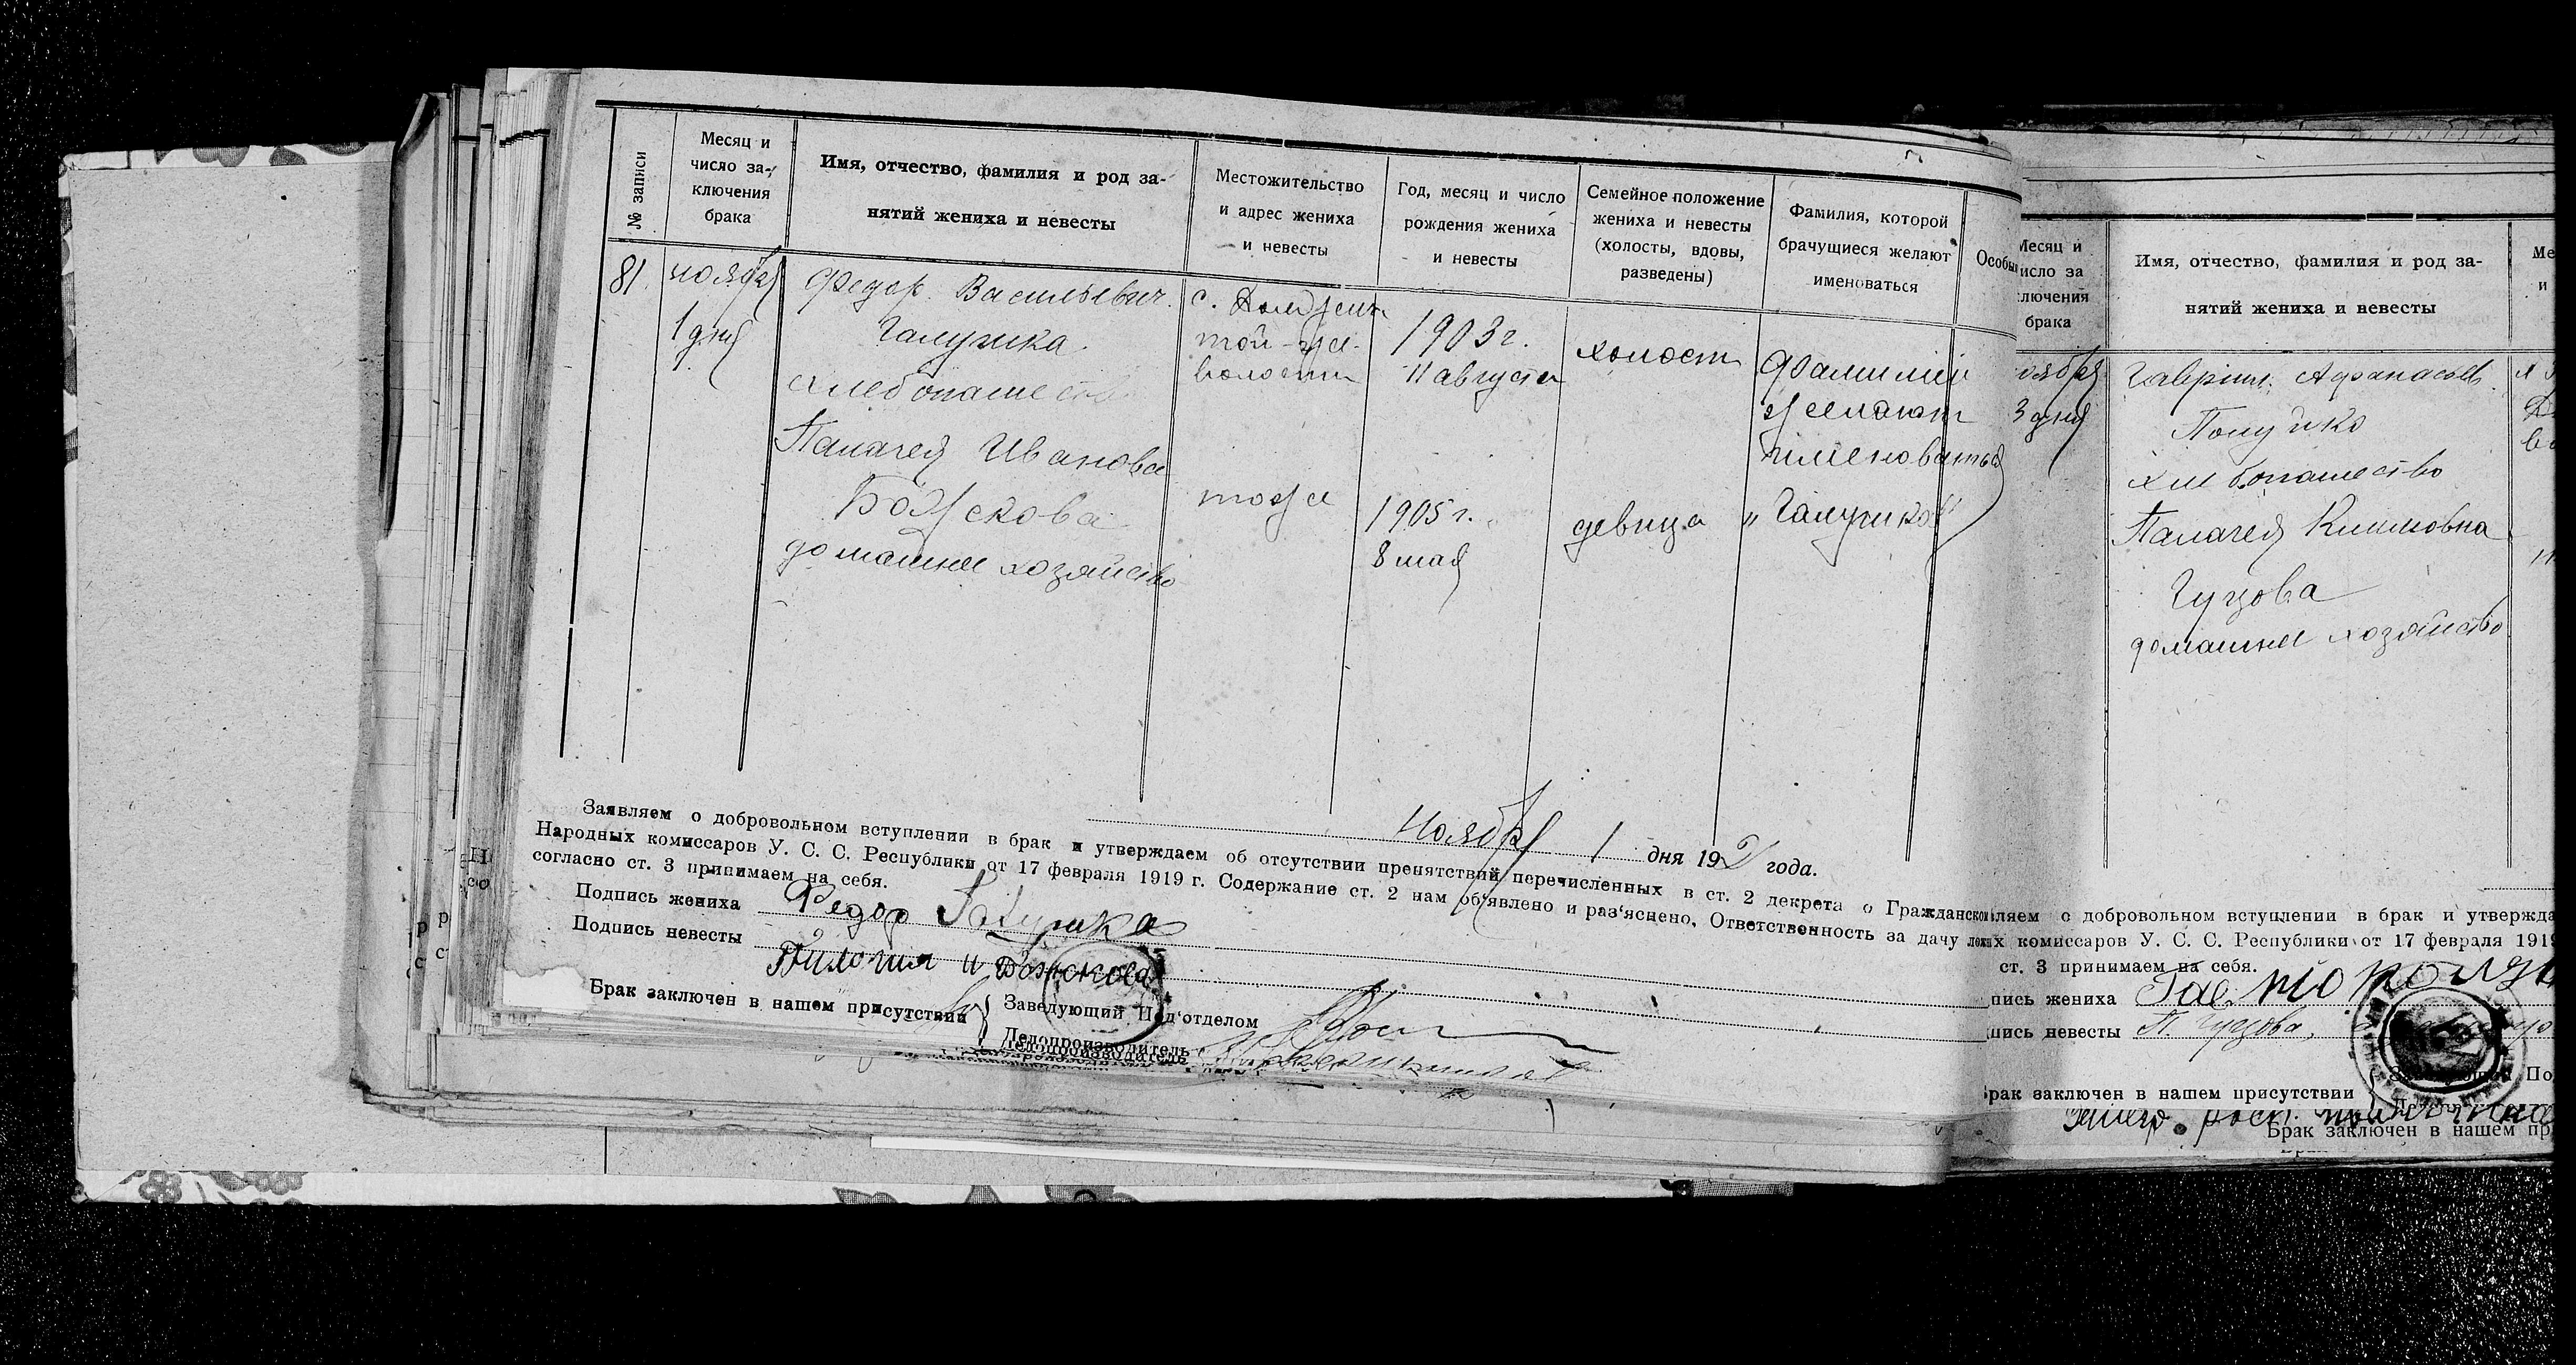 № записи
Месяц и
число за-
ключения
брака
Имя, отчество, фамилия и род за-
нятий жениха и невесты
Местожительство
и адрес жениха
и невесты
Год, месяц и число
рождения жениха
и невесты
Семейное положение
жениха и невесты
(холосты, вдовы,
разведены)
Фамилия, которой
брачущиеся желают
именоваться
Особы
81.
ноября
1 дня
Федор Васильевич
Галушка
хлебопашество
Палагея Иванова
Божскова
домашнее хозяйство
с.
той-же
волости
тоже
1903 г.
11 августа
1905 г.
8 мая
холост
девица
Фамилией
желают
именоваться
„Галушко"
ноября 1 дня 192 года.
Заявляем о добровольном вступлении в брак и утверждаем об отсутствии препятствий перечисленных в ст. 2 декрета о Гражданско
Народных комиссаров У. С. С. Республики от 17 февраля 1919 г. Содержание ст. 2 нам об'явлено и раз'яснено. Ответственность за дачу
согласно ст. 3 принимаем на себя.
Подпись жениха Федор Галушка
Подпись невесты и Божскова
Брак заключен в нашем присутствии
Заведующий Под'отделом
Делопроизводитель
Делопроизводитель
Месяц и
исло за
лючения
брака
Имя, отчество, фамилия и род за-
нятий жениха и невесты
Ме
и
оября
3 дня
Гавриил Афанасьев
Полушко
хлебопашество
Палагея Климовна
Гуцова
домашнее хозяйство
ляем о добровольном вступлении в брак и утвержда
х комиссаров У. С. С. Республики от 17 февраля 1919
ст. 3 принимаем на себя.
пись жениха Гав.
пись невесты П. Гуцова,
рак заключен в нашем присутствии
Брак заключен в нашем пр